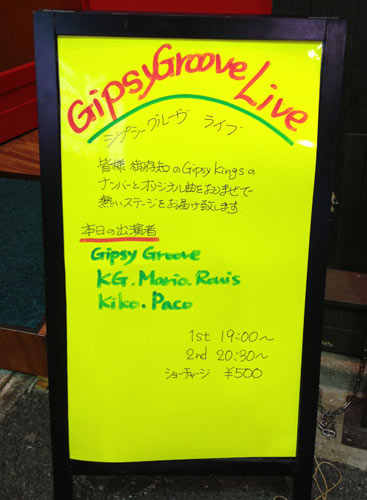 GipsyGroove Live
ジプシーグルーヴ ライブ
皆様御存知のGipsy Kingsの
ナンバーとオリジナル曲をおりまぜて
熱いステージをお届け致します.
本日の出演者
Gipsy Groove
KG. Mario. Rouis
Kiko. Paco
1st 19:00〜
2nd 20:30〜
ショーチャージ ¥500